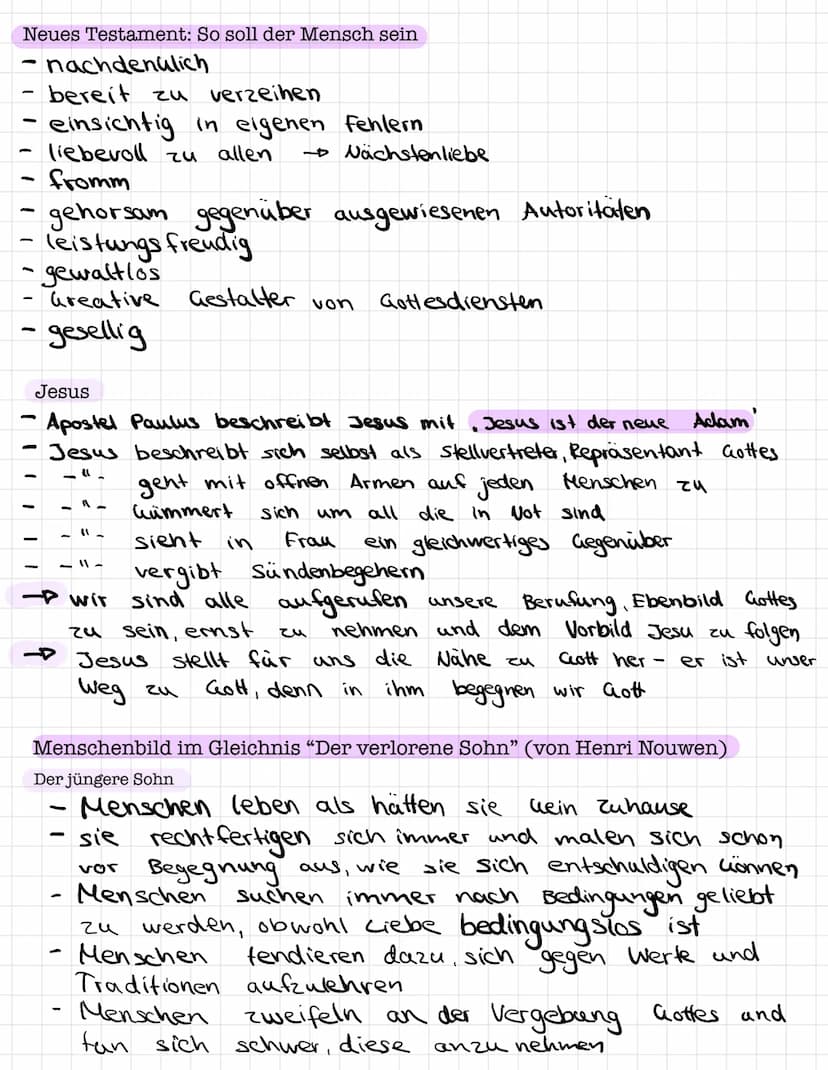 Neues Testament: So soll der Mensch sein
- nachdenklich
- bereit zu verzeihen
- einsichtig in eigenen Fehlern
- liebevoll zu allen → Nächstenliebe
- fromm
- gehorsam gegenüber ausgewiesenen Autoritäten
- leistungsfreudig
- gewaltlos
- kreative Gestalter von Gottesdiensten
- gesellig
Jesus
- Apostel Paulus beschreibt Jesus mit ‚Jesus ist der neue Adam'
- Jesus beschreibt sich selbst als Stellvertreter, Repräsentant Gottes
- -"- geht mit offnen Armen auf jeden Menschen zu
- -"- kümmert sich um all die in Not sind
- -"- sieht in Frau ein gleichwertiges Gegenüber
- -"- vergibt Sündenbegehern
→ wir sind alle aufgerufen unsere Berufung, Ebenbild Gottes
zu sein, ernst zu nehmen und dem Vorbild Jesu zu folgen
→ Jesus stellt für uns die Nähe zu Gott her - er ist unser
Weg zu Gott, denn in ihm begegnen wir Gott
Menschenbild im Gleichnis “Der verlorene Sohn” (von Henri Nouwen)
Der jüngere Sohn
- Menschen leben als hätten sie kein Zuhause
- sie rechtfertigen sich immer und malen sich schon
vor Begegnung aus, wie sie sich entschuldigen können
- Menschen suchen immer nach Bedingungen geliebt
zu werden, obwohl Liebe bedingungslos ist
- Menschen tendieren dazu, sich gegen Werte und
Traditionen aufzulehren
- Menschen zweifeln an der Vergebung Gottes und
tun sich schwer, diese anzunehmen